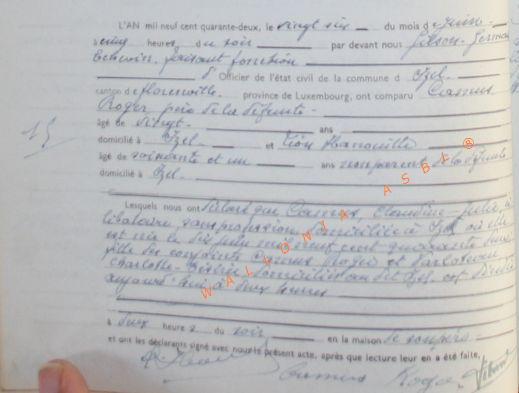 L'AN mil neuf cent quarante-deux, le vingt six du mois d e juin
à cinq heures du soir par devant nous Gilson Germain
Echevin, faisant fonction
d'Officier de l'état civil de la commune d Izel
canton de Florenville province de Luxembourg, ont comparu Camus
Roger père de la défunte
15 âgé de vingt ans
domicilié à Izel et Léon
âgé de soixante et un ans non parent de la défunte
domicilié à Izel
Lesquels nous ont déclaré que Camus, Claudine Julia
célibataire, sans profession domiciliée à Izel où elle
est née le dix juin mil neuf cent quarante deux
fille des conjoints Camus Roger et
Charlotte domiciliés au dit Izel est décédée
aujourd'hui à deux heures
à deux heures du soir en la maison de son père
et ont les déclarants signé avec nous le présent acte, après que lecture leur en a été faite,
Camus Roger
WALLONIA ASBL ®